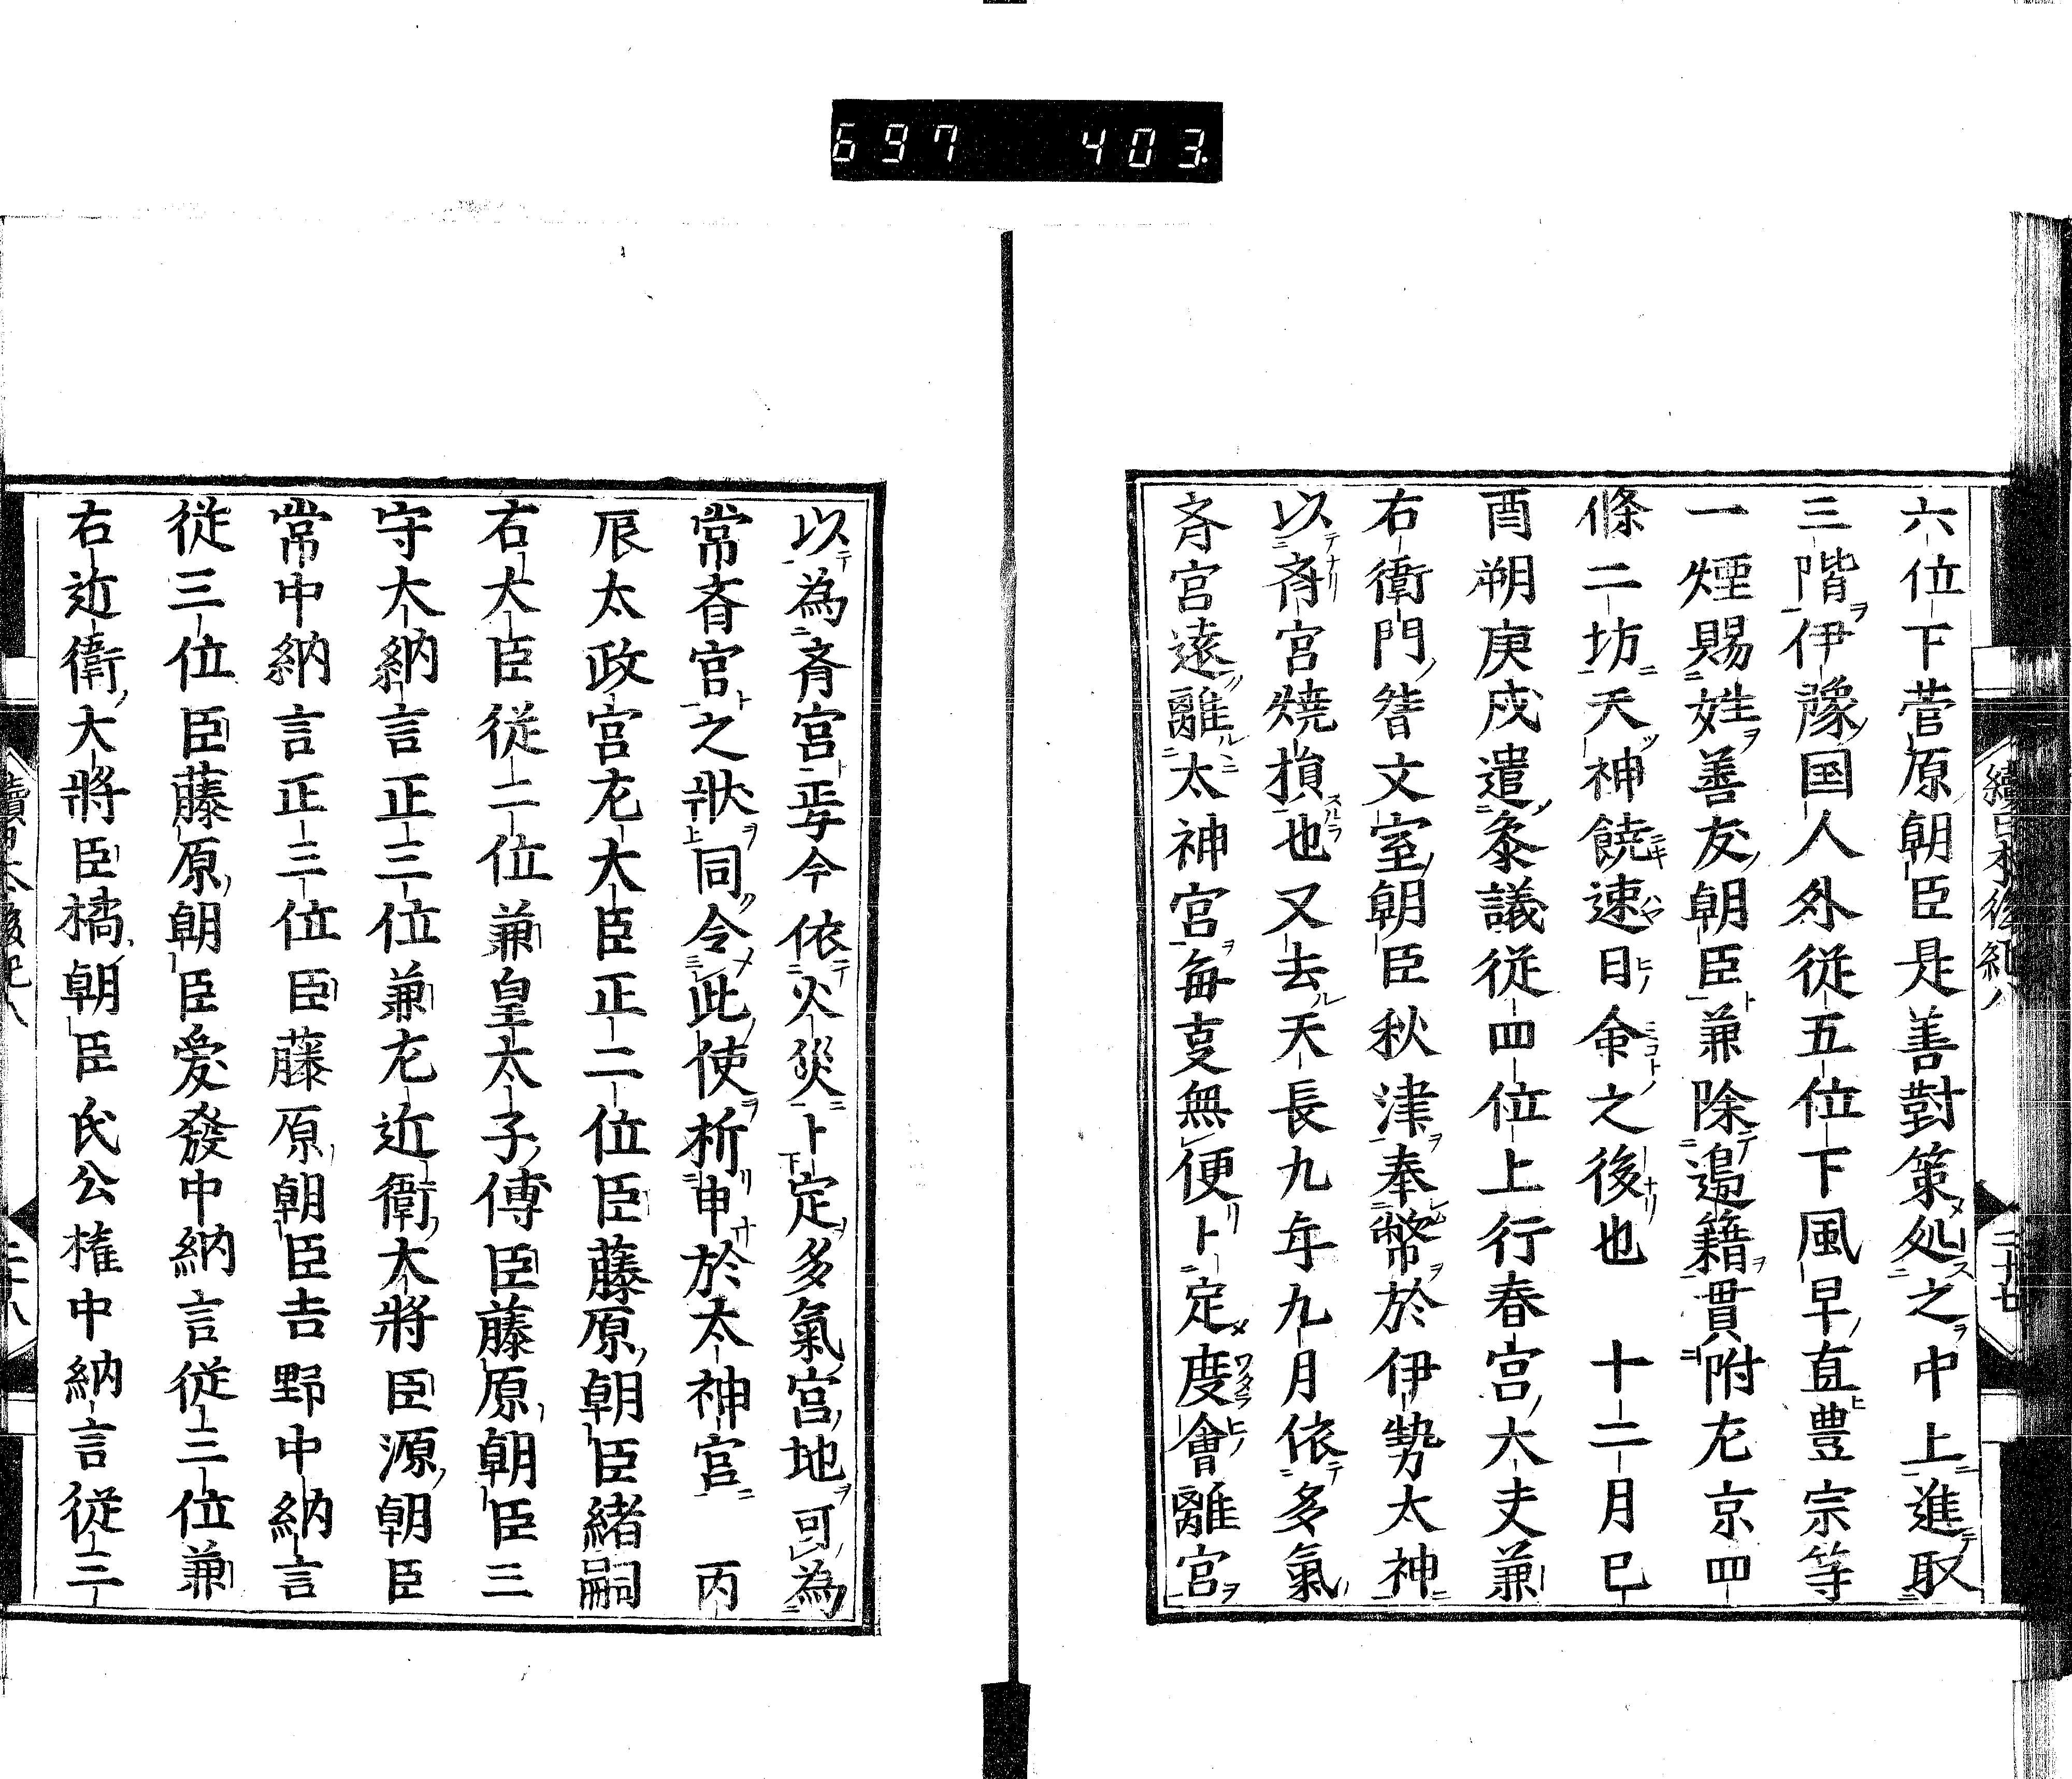 697 403
續日本後紀八 二十七
六位下菅原朝臣是善對策処之中上進取
三階伊豫国人外従五位下風早直豊宗等
一煙賜姓善友朝臣兼除邉籍貫附左京四
條二坊天神饒速日命之後也 十二月己
酉朔庚戌遣参議従四位上行春宮大夫兼
右衛門督文室朝臣秋津奉幣於伊勢太神
以斎宮焼損也又去天長九年九月依多氣
斎宮遠離太神宮毎事無便卜定度會離宮
以為斎宮焉今依火災卜定多氣宮地可為
常斎宮之状同令此使祈申於太神宮 丙
辰太政官左大臣正二位臣藤原朝臣緒嗣
右大臣従二位兼皇太子傅臣藤原朝臣三
守大納言正三位兼左近衛大將臣源朝臣
常中納言正三位臣藤原朝臣吉野中納言
従三位臣藤原朝臣愛發中納言従三位兼
右近衛大將臣橘朝臣氏公権中納言従三
續日本後紀八 二十八